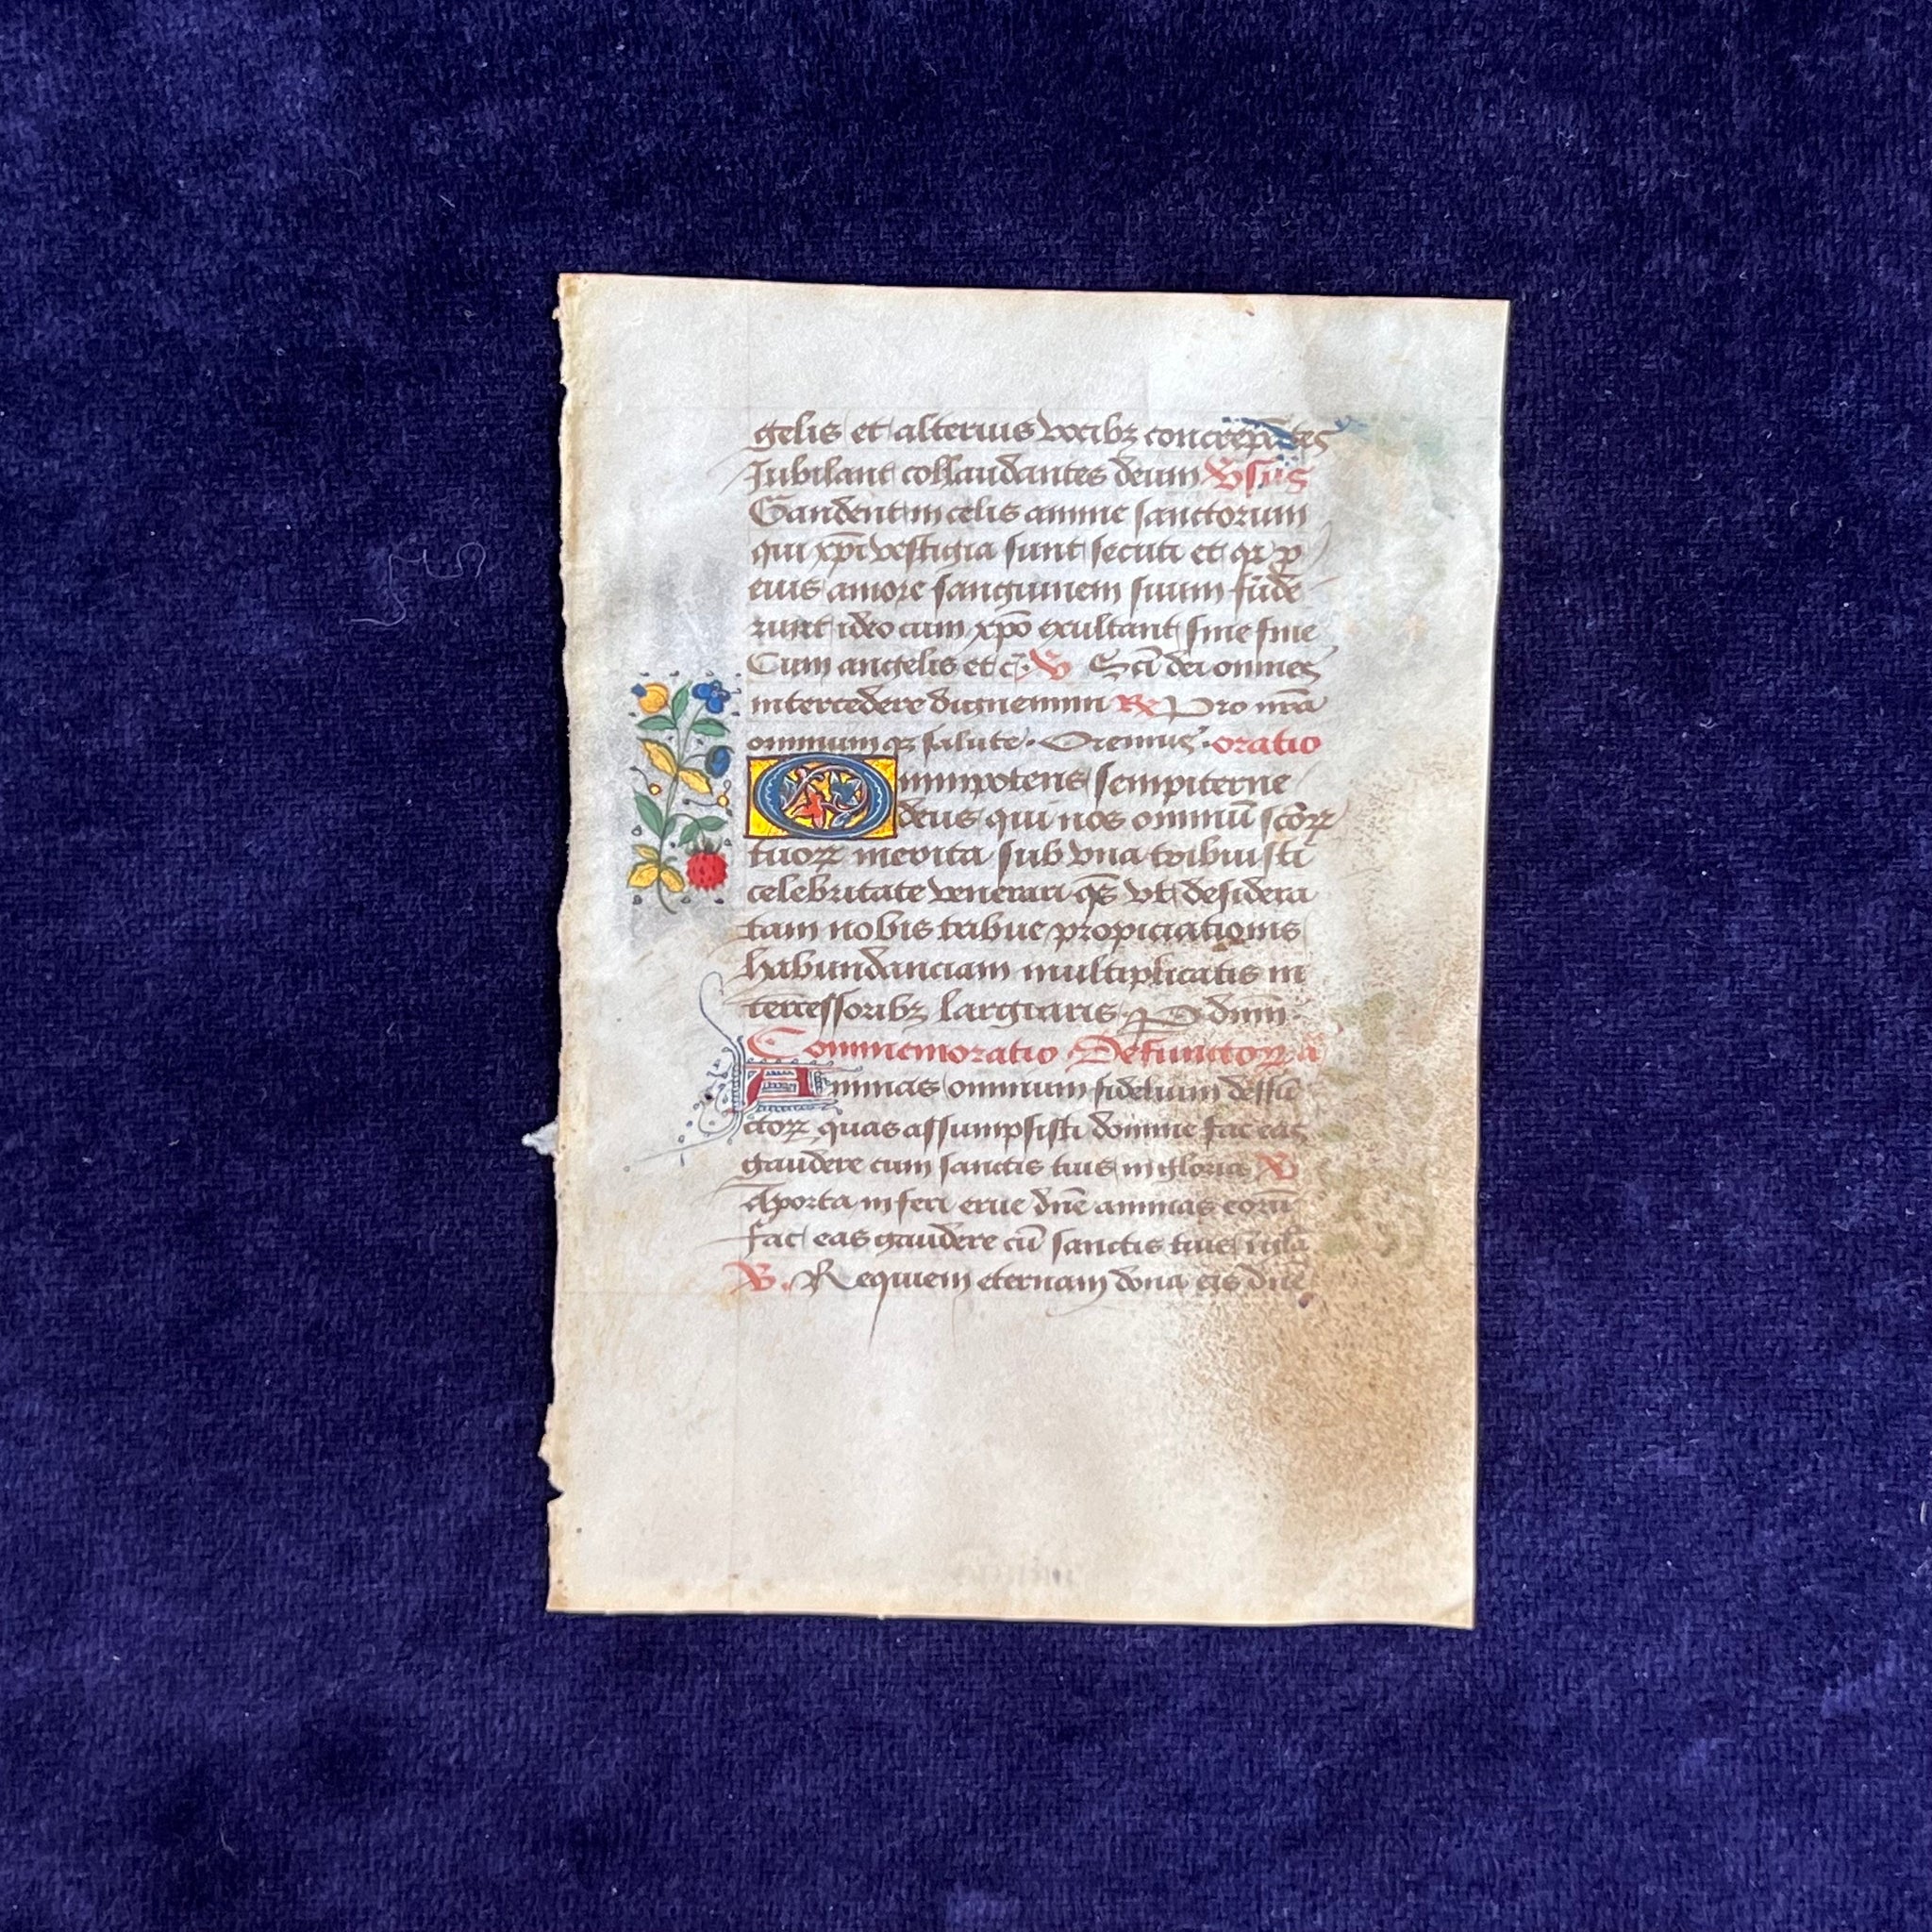 gelis et alterius vocibꝫ concrepātes
Iubilant collaudantes deum Vsus
Gaudent in celis anime sanctorum
qui xp̄i vestigia sunt secuti et qꝛ ꝓ
eius amore sanguinem suum fūde
runt ideo cum xp̄o exultant sine fine
Cum angelis et c̄. V Sc̄i dei omnes
intercedere dignemini R Pro nr̄a
omniumqꝫ salute. Oremus. oratio
Omnipotens sempiterne
deus qui nos omniū sc̄oꝝ
tuoꝝ merita sub vna tribuisti
celebritate venerari qs̄ vt desidera
tam nobis tribue propiciationis
habundanciam multiplicatis in
tercessoribꝫ largiaris. P dnm̄.
Commemoratio Defunctoꝝ ā
Animas omnium fidelium deffū
ctoꝝ quas assumpsisti domine fac eas
gaudere cum sanctis tuis in gloria V
A porta inferi erue dn̄e animas eorū
fac eas gaudere cū sanctis tuis
V. Requiem eternam dona eis dn̄e